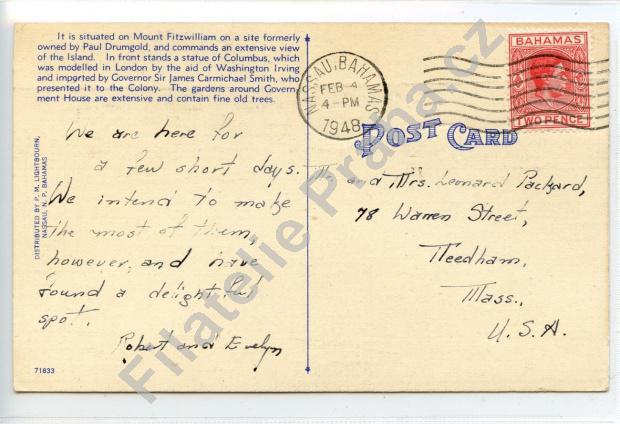 It is situated on Mount Fitzwilliam on a site formerly
owned by Paul Drumgold, and commands an extensive view
of the Island. In front stands a statue of Columbus, which
was modelled in London by the aid of Washington Irving
and imported by Governor Sir James Carmichael Smith, who
presented it to the Colony. The gardens around Govern-
ment House are extensive and contain fine old trees.
We are here for
a few short days.
We intend to make
the most of them,
however, and have
found a delightful
spot.
Robert and Evelyn
DISTRIBUTED BY P. M. LIGHTBOURN,
NASSAU, N. P. BAHAMAS
71833
NASSAU, BAHAMAS
FEB 4
4-PM
1948
BAHAMAS
TWO PENCE
POST CARD
and Mrs. Leonard Packard,
78 Warren Street,
Needham,
Mass.,
U.S.A.
Filatelie Praha.cz